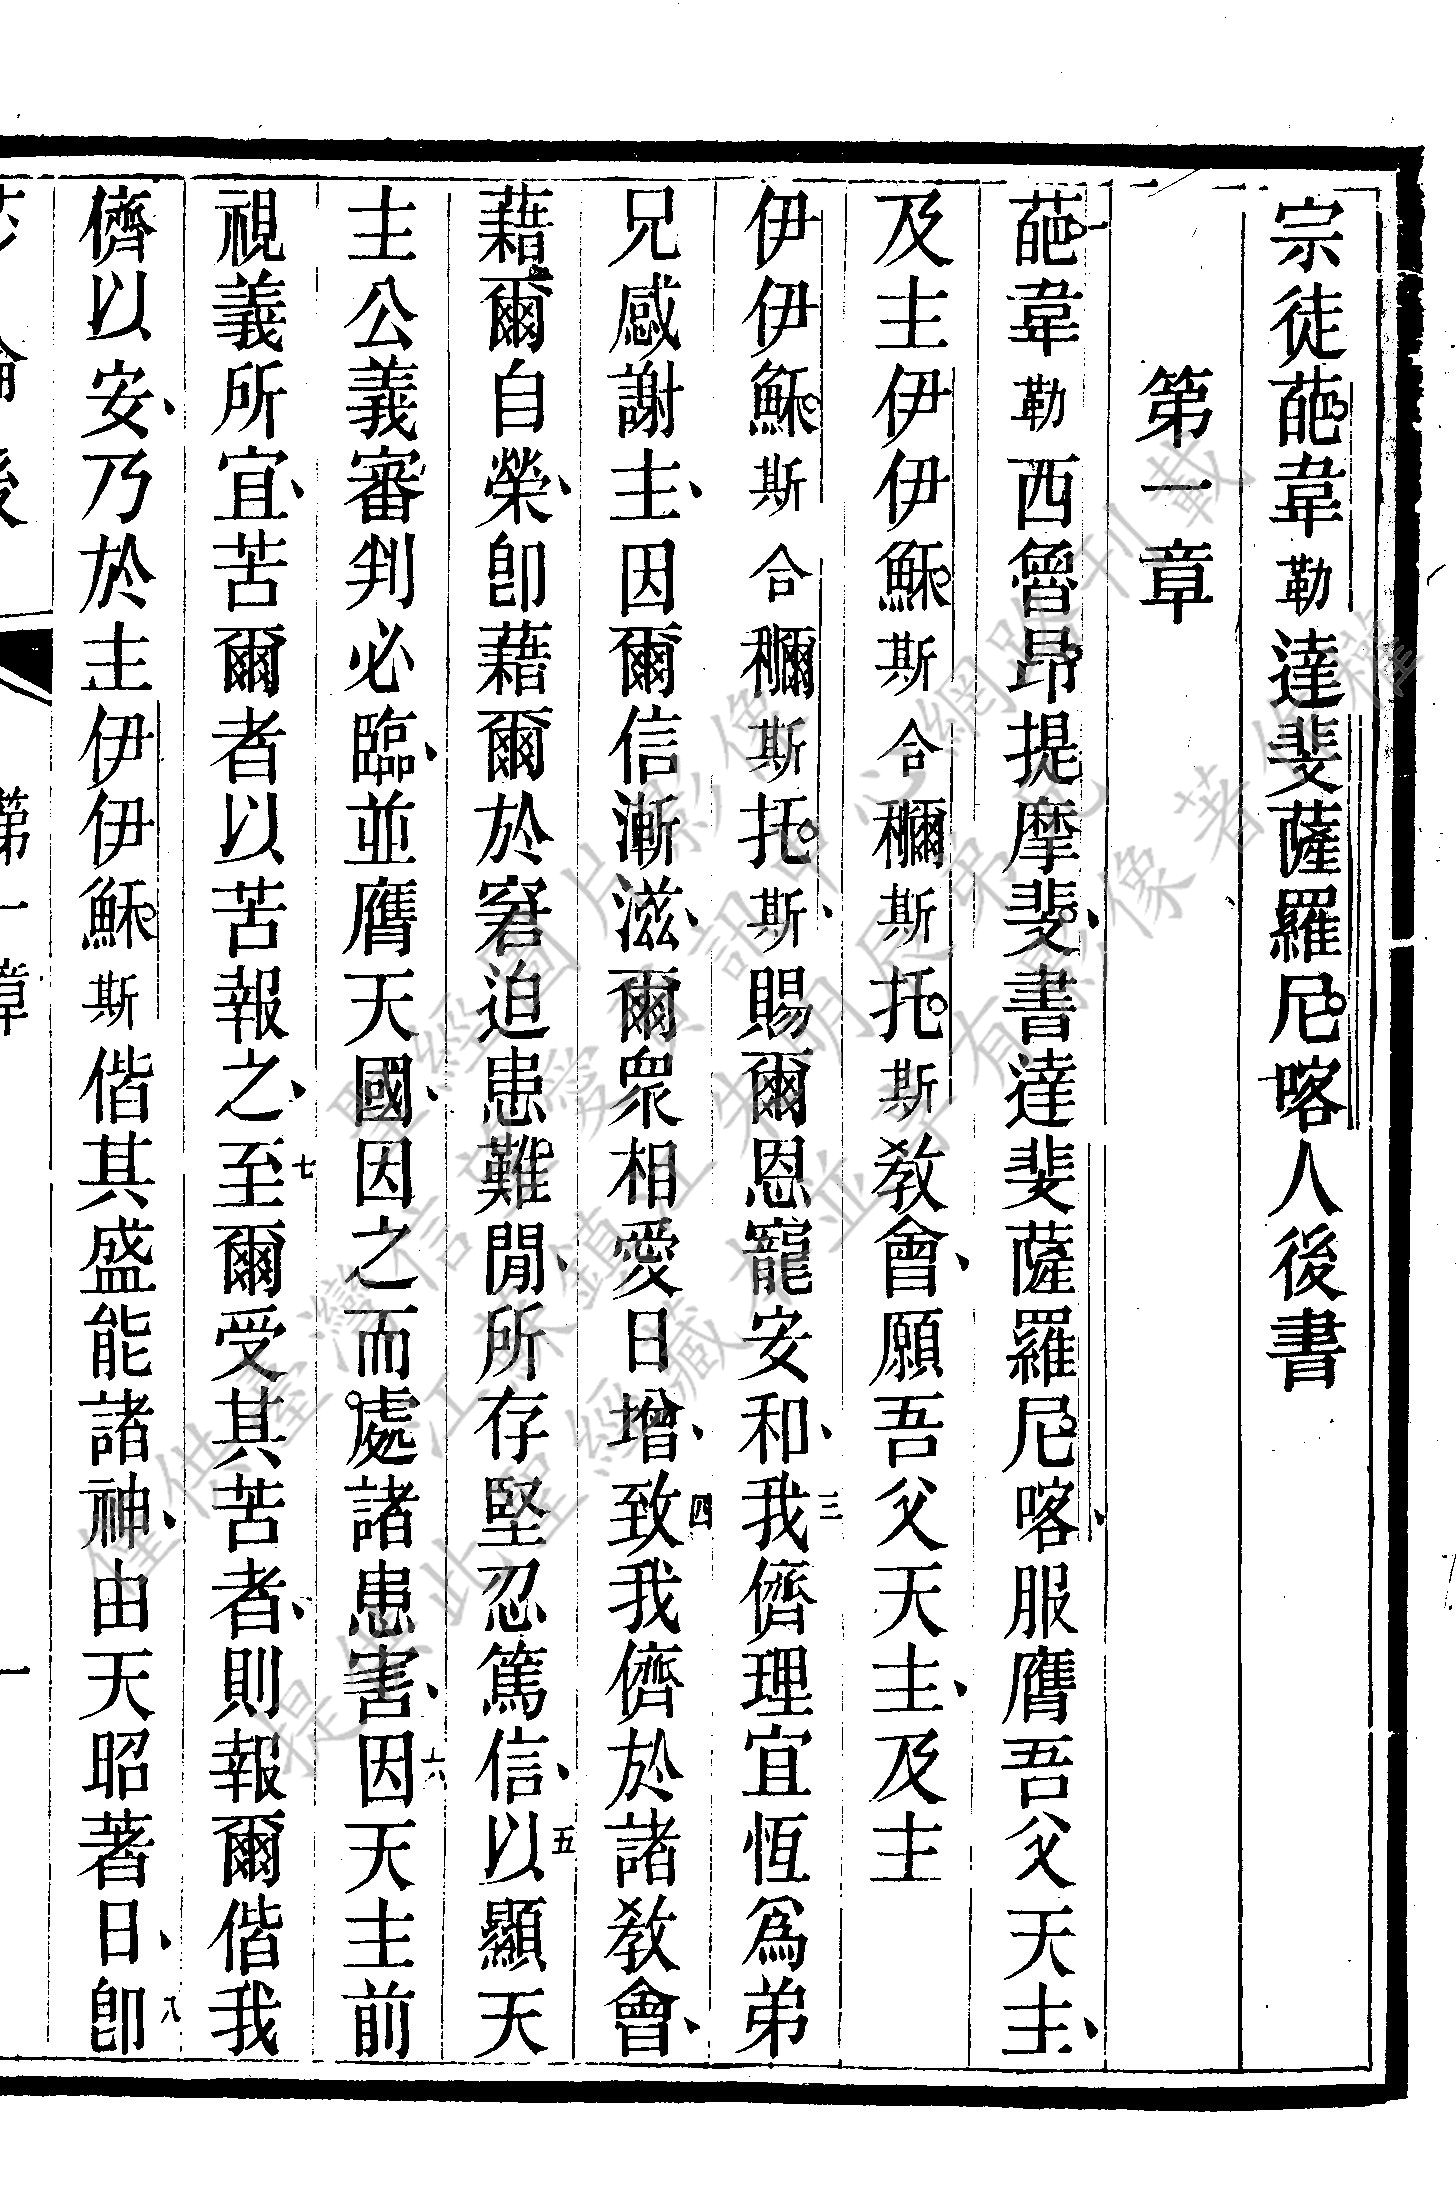 宗徒葩韋勒達斐薩羅尼喀人後書
第一章
一葩韋勒西魯昂提摩斐、書達斐薩羅尼喀、服膺吾父天主、
及主伊伊穌斯合穪斯托斯教會、願吾父天主、及主
伊伊穌斯合穪斯托斯、賜爾恩寵安和、三我儕理宜恆為弟
兄感謝主、因爾信漸滋、爾眾相愛日增、四致我儕於諸教會、
藉爾自榮、即藉爾於窘迫患難閒、所存堅忍篤信、五以顯天
主公義審判必臨、並膺天國、因之而處諸患害、六因天主前
視義所宜、苦爾者以苦報之、七至爾受其苦者、則報爾偕我
儕以安、乃於主伊伊穌斯偕其盛能諸神、由天昭著日、八即
後 第一章 一
僅供臺灣信望愛資訊中心網路刊載